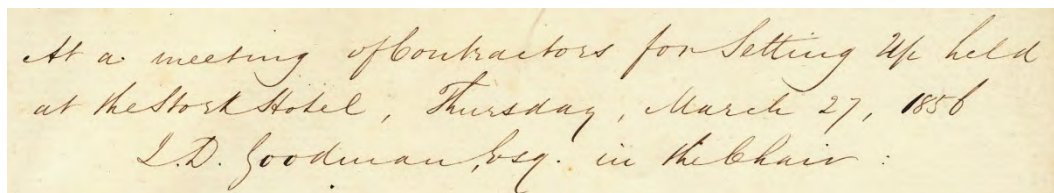 At a meeting of Contractors for Setting Up held
at the Stork Hotel, Thursday, March 27, 1856
J.D. Goodman, Esq. in the Chair: